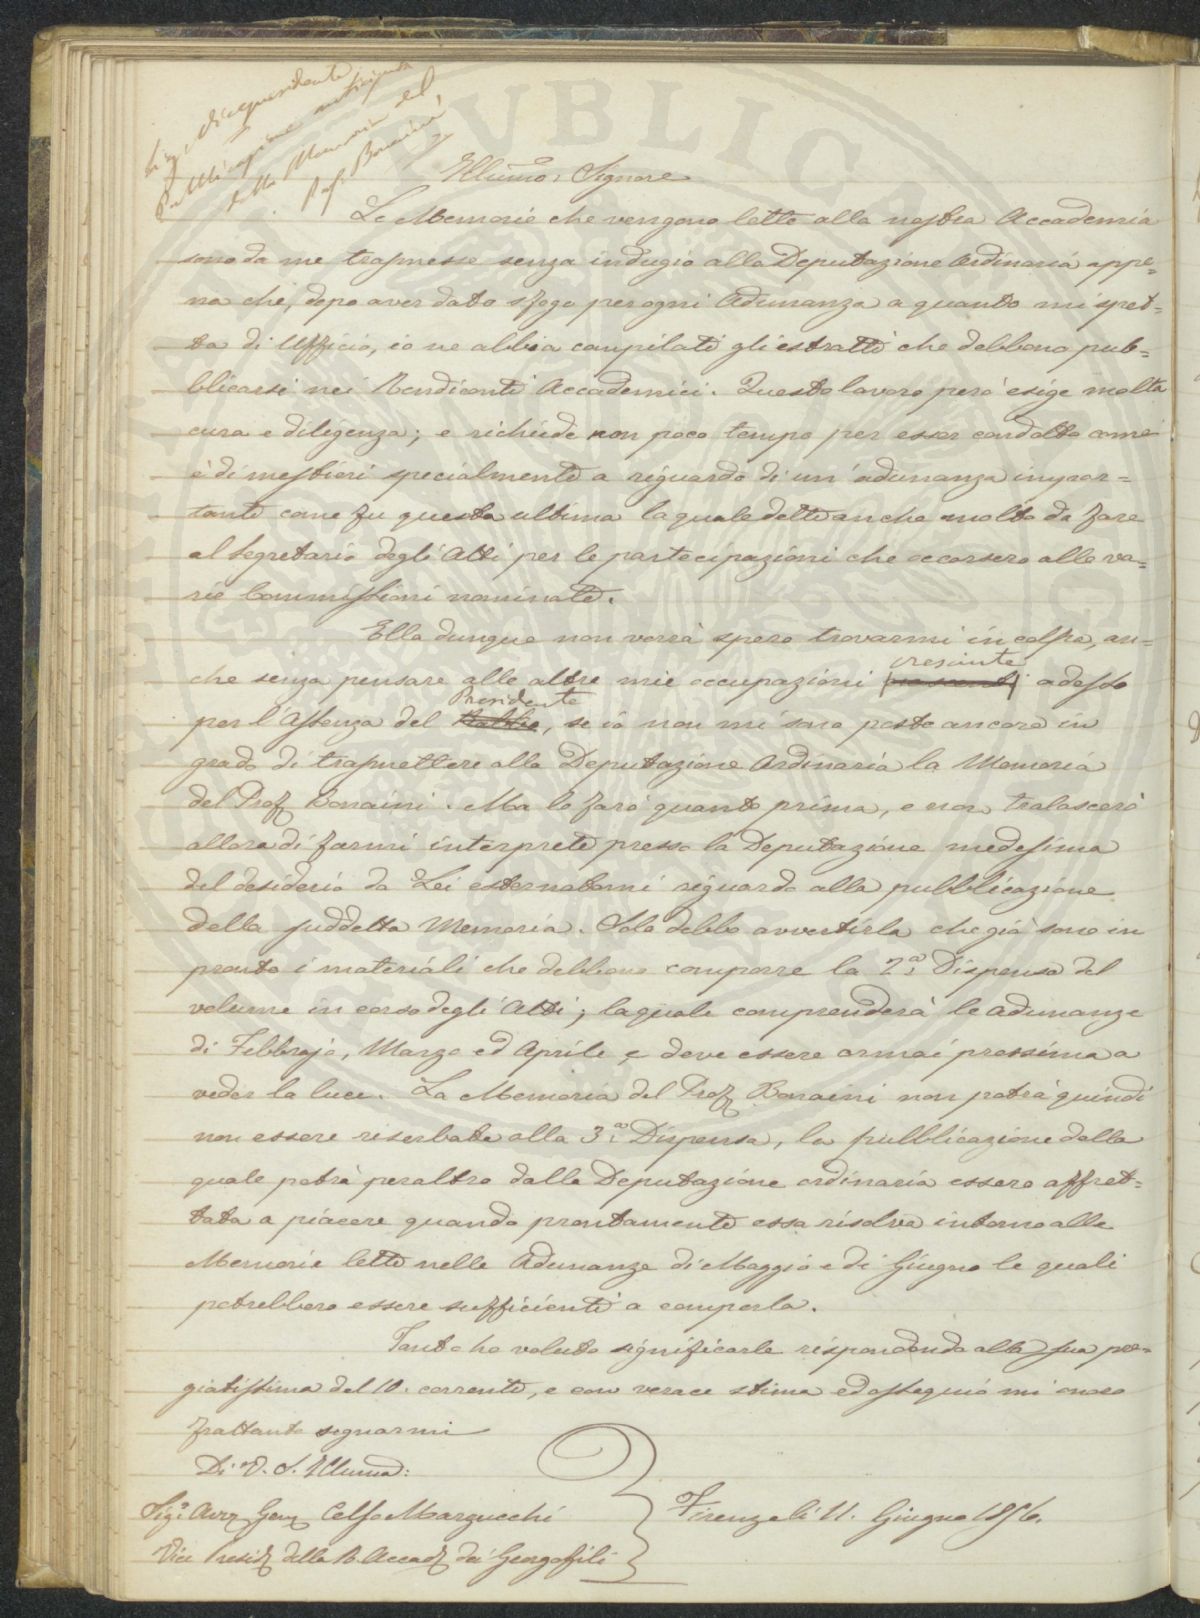 Sig. Vicepresidente
Pubblicazione anticipata
della Memoria del
Prof. Bonaini
Illumo. Signore
Le Memorie che vengono lette alla nostra Accademia
sono da me trasmesse senza indugio alla Deputazione Ordinaria appe=
na che, dopo aver dato sfogo per ogni Adunanza a quanto mi spet=
ta di Ufficio, io ne abbia compilati gli estratti che debbono pub=
blicarsi nei Rendiconti Accademici. Questo lavoro però esige molta
cura e diligenza; e richiede non poco tempo per esser condotto come
è di mestieri specialmente a riguardo di un'adunanza impor=
tante come fu questa ultima la quale dette anche molto da fare
al Segretario degli Atti per le partecipazioni che occorsero alle va=
rie Commissioni nominate.
Ella dunque non vorrà spero trovarmi in colpa, an=
che senza pensare alle altre mie occupazioni cresciute adesso
per l'Assenza del Presidente, se io non mi sono posto ancora in
grado di trasmettere alla Deputazione Ordinaria la Memoria
del Prof Bonaini. Ma lo farò quanto prima, e non tralascerò
allora di farmi interprete presso la Deputazione medesima
del desiderio da Lei esternatomi riguardo alla pubblicazione
della suddetta Memoria. Solo debbo avvertirla che già sono in
pronto i materiali che debbono comporre la 2a Dispensa del
volume in corso degli Atti; la quale comprenderà le adunanze
di Febbrajo, Marzo ed Aprile e deve essere ormai prossima a
veder la luce. La Memoria del Prof Bonaini non potrà quindi
non essere riserbata alla 3a Dispensa, la pubblicazione della
quale potrà peraltro dalla Deputazione ordinaria essere affret=
tata a piacere quando prontamente essa risolva intorno alle
Memorie lette nelle Adunanze di Maggio e di Giugno le quali
potrebbero essere sufficienti a comporla.
Tanto ho voluto significarle rispondendo alla sua pre=
giatissima del 10. corrente, e con verace stima ed ossequio mi onoro
frattanto segnarmi
Di V. S. Illuma:
Sigr. Avv Gen Celso Marzucchi
Vice Presid della R. Accad dei Georgofili
Firenze li 11. Giugno 1856.